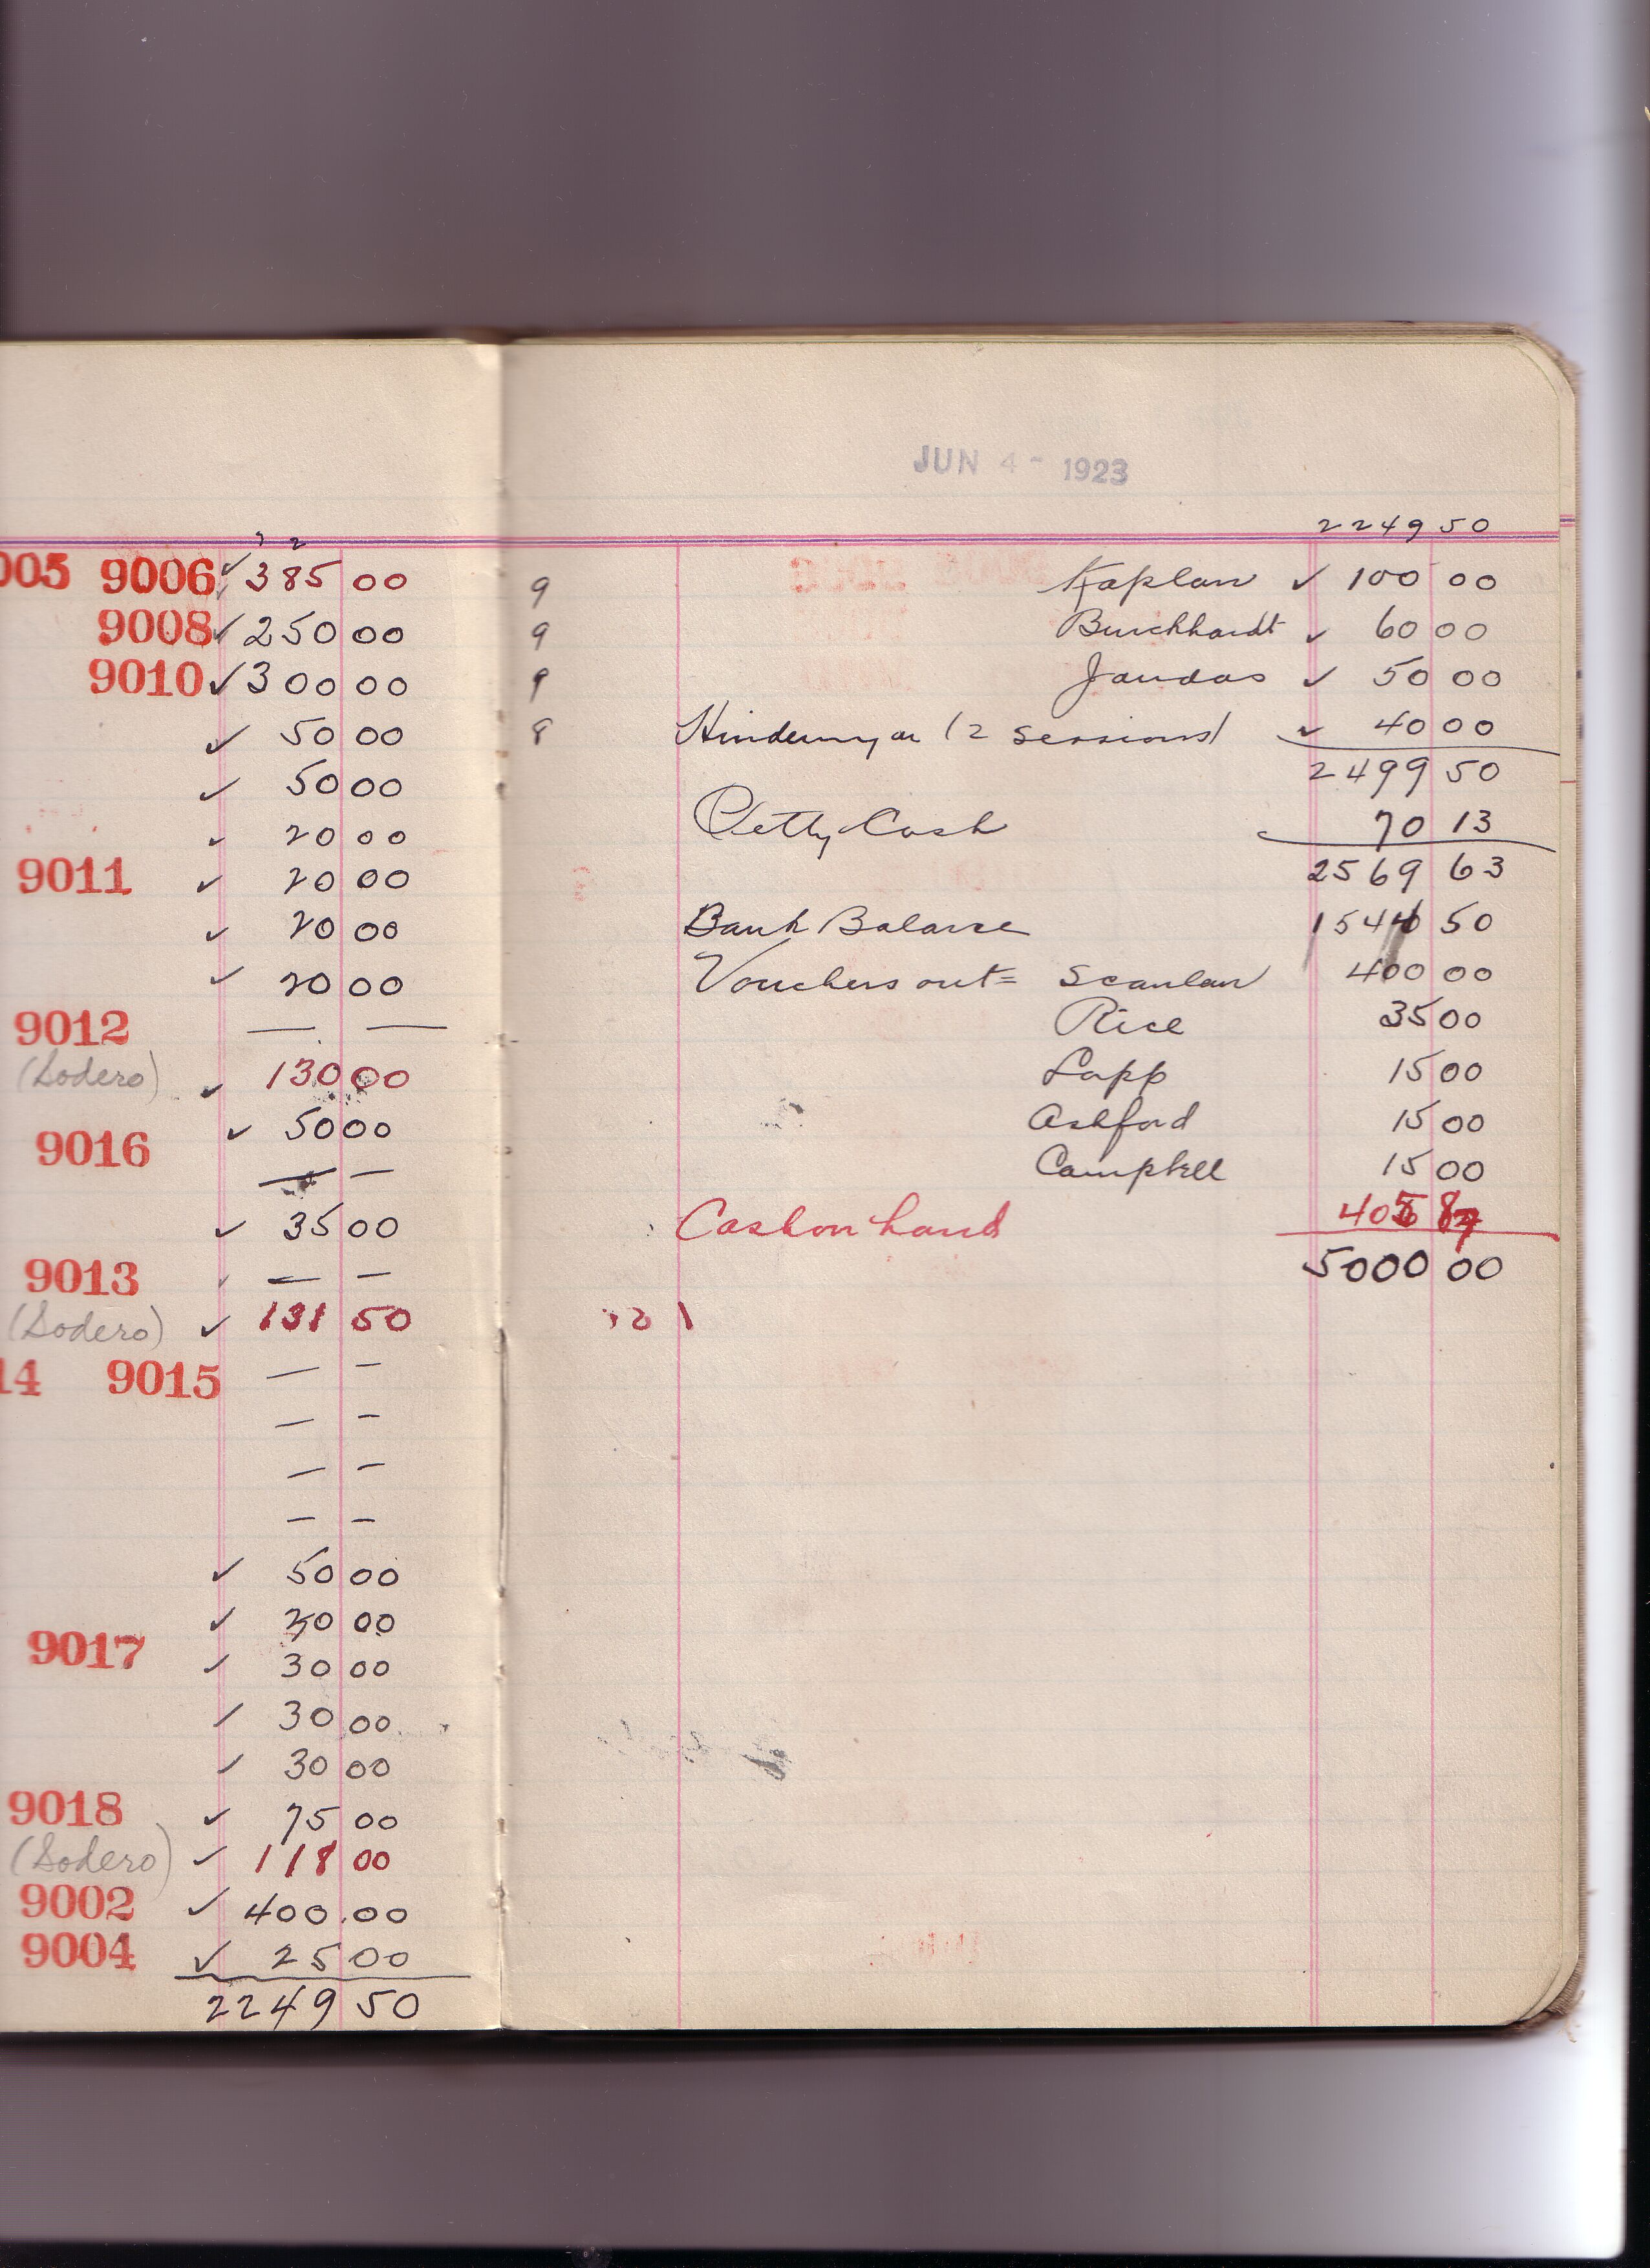 005 9006 ✓ 385 00
9008 ✓ 250 00
9010 ✓ 300 00
✓ 50 00
✓ 50 00
✓ 20 00
9011 ✓ 20 00
✓ 20 00
✓ 20 00
9012 — —
(Sodero) ✓ 130 00
9016 ✓ 50 00
— —
✓ 35 00
9013 — —
(Sodero) ✓ 131 50
14 9015 — —
— —
— —
— —
✓ 50 00
✓ 00
9017 ✓ 30 00
✓ 30 00
✓ 30 00
9018 ✓ 75 00
(Sodero) ✓ 118 00
9002 ✓ 400.00
9004 ✓ 25 00
2249 50
JUN 4 - 1923
2249 50
9 Kaplan ✓ 100 00
9 Burchhardt ✓ 60 00
9 Jaudas ✓ 50 00
8 (2 sessions) ✓ 40 00
2499 50
Petty Cash 70 13
2569 63
Bank Balance 154 50
Vouchers out = Scanlan 400 00
Rice 35 00
Lapp 15 00
Ashford 15 00
Campbell 15 00
Cash on hand 405 87
5000 00